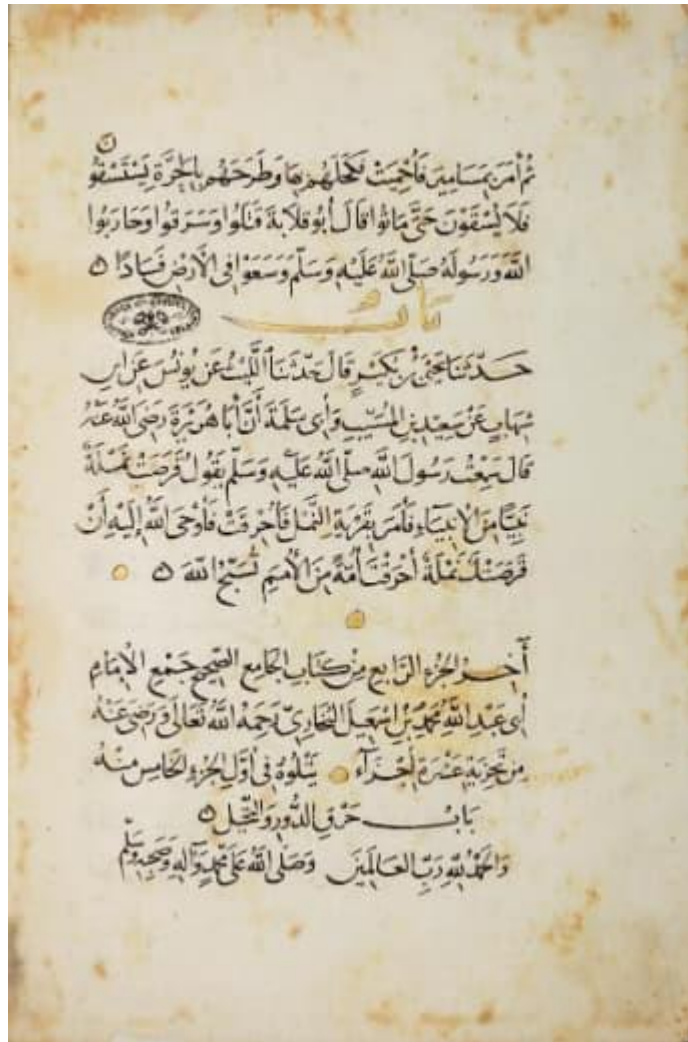 ثُمَّ أَمَرَ بِمَسَامِيرَ فَأُحْمِيَتْ فَكَحَلَهُمْ بِهَا وَطَرَحَهُمْ بِالْحَرَّةِ يَسْتَسْقُونَ
فَلَا يُسْقَوْنَ حَتَّى مَاتُوا قَالَ أَبُو قِلَابَةَ قَتَلُوا وَسَرَقُوا وَحَارَبُوا
اللَّهَ وَرَسُولَهُ صَلَّى اللَّهُ عَلَيْهِ وَسَلَّمَ وَسَعَوْا فِي الْأَرْضِ فَسَادًا
بَابٌ
حَدَّثَنَا يَحْيَى بْنُ بُكَيْرٍ قَالَ حَدَّثَنَا اللَّيْثُ عَنْ يُونُسَ عَنِ ابْنِ
شِهَابٍ عَنْ سَعِيدِ بْنِ الْمُسَيِّبِ وَأَبِي سَلَمَةَ أَنَّ أَبَا هُرَيْرَةَ رَضِيَ اللَّهُ عَنْهُ
قَالَ سَمِعْتُ رَسُولَ اللَّهِ صَلَّى اللَّهُ عَلَيْهِ وَسَلَّمَ يَقُولُ قَرَصَتْ نَمْلَةٌ
نَبِيًّا مِنَ الْأَنْبِيَاءِ فَأَمَرَ بِقَرْيَةِ النَّمْلِ فَأُحْرِقَتْ فَأَوْحَى اللَّهُ إِلَيْهِ أَنْ
قَرَصَتْكَ نَمْلَةٌ أَحْرَقْتَ أُمَّةً مِنَ الْأُمَمِ تُسَبِّحُ اللَّهَ
آخِرُ الْجُزْءِ الرَّابِعِ مِنْ كِتَابِ الْجَامِعِ الصَّحِيحِ جَمْعِ الْإِمَامِ
أَبِي عَبْدِ اللَّهِ مُحَمَّدِ بْنِ إِسْمَعِيلَ الْبُخَارِيِّ رَحِمَهُ اللَّهُ تَعَالَى وَرَضِيَ عَنْهُ
مِنْ تَجْزِيَةِ عَشَرَةِ أَجْزَاءٍ يَتْلُوهُ فِي أَوَّلِ الْجُزْءِ الْخَامِسِ مِنْهُ
بَابُ حَرْقِ الدُّورِ وَالنَّخِيلِ
وَالْحَمْدُ لِلَّهِ رَبِّ الْعَالَمِينَ وَصَلَّى اللَّهُ عَلَى مُحَمَّدٍ وَآلِهِ وَصَحْبِهِ وَسَلَّمَ